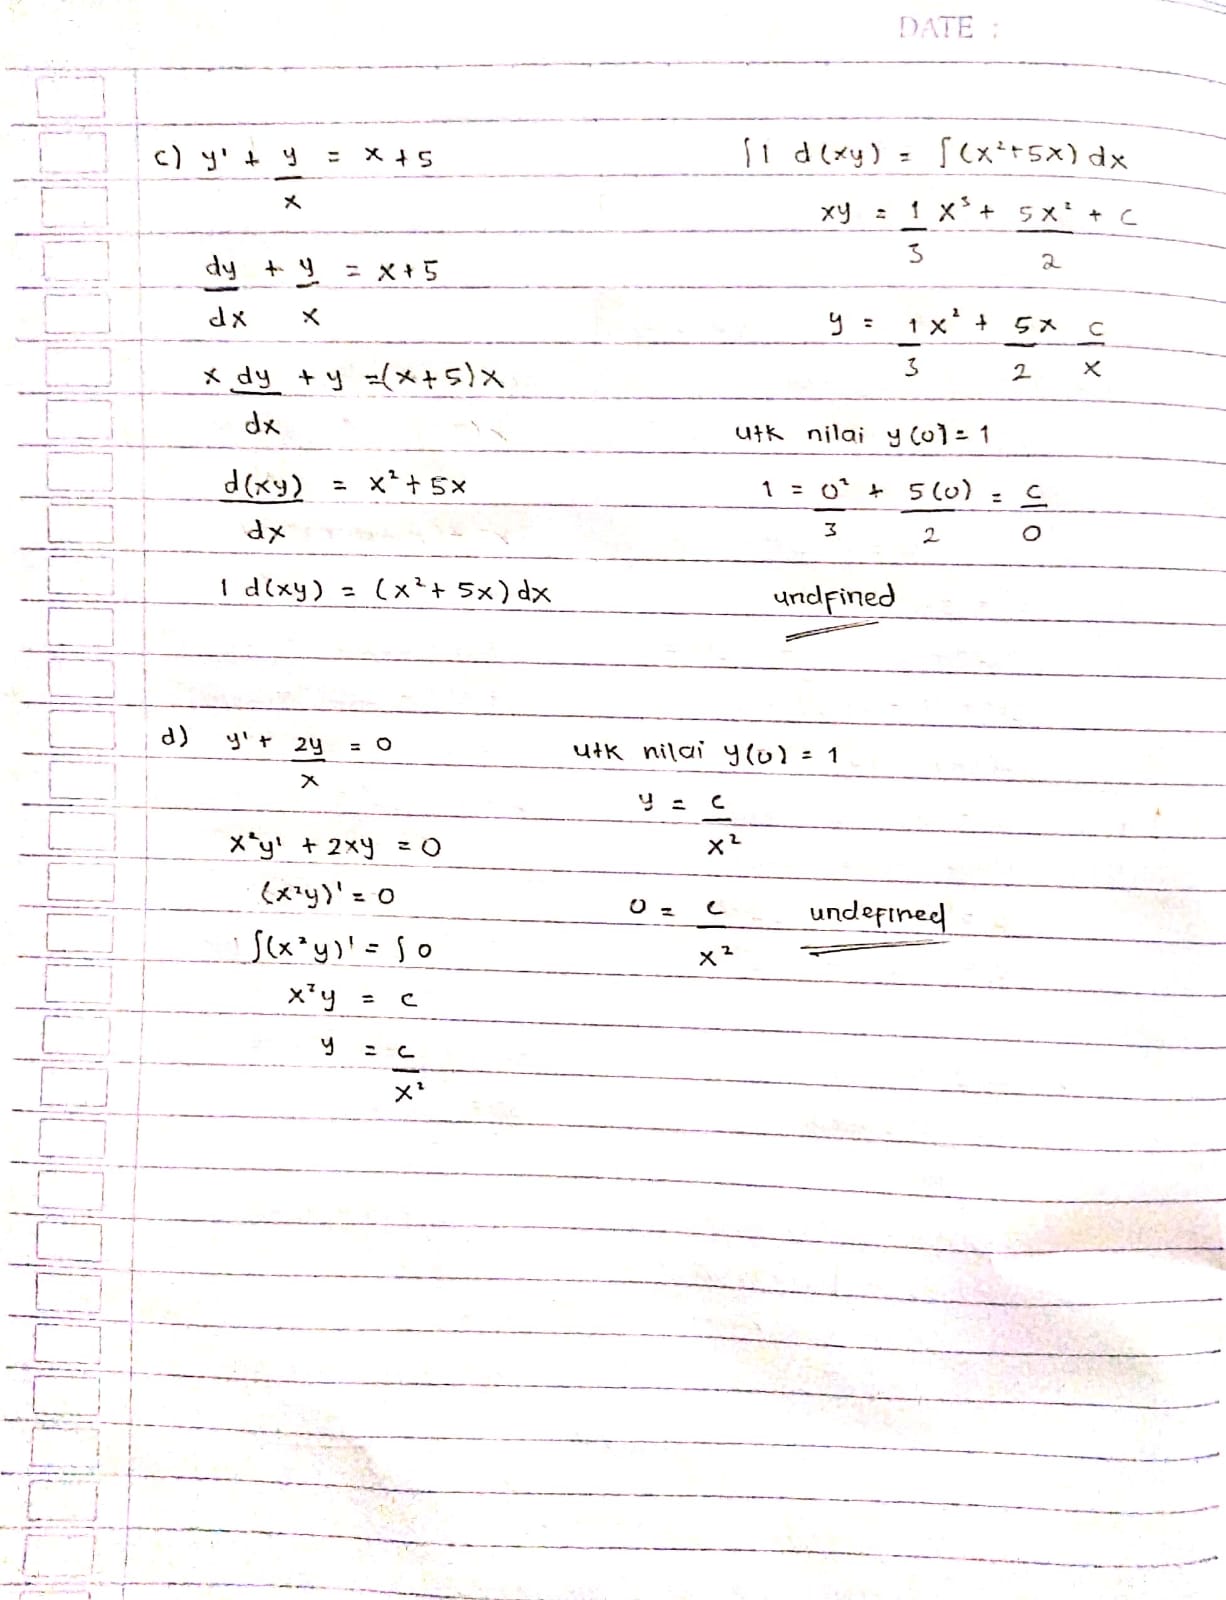 DATE :
c) y' + y/x = x + 5
dy/dx + y/x = x + 5
x dy/dx + y = (x + 5) x
d(xy)/dx = x² + 5x
1 d(xy) = (x² + 5x) dx
∫1 d(xy) = ∫(x²+5x) dx
xy = 1/3 x³ + 5x²/2 + c
y = 1/3 x² + 5x/2 c/x
utk nilai y(0) = 1
1 = 0²/3 + 5(0)/2 = c/0
undfined
d) y' + 2y/x = 0
x²y' + 2xy = 0
(x²y)' = 0
∫(x²y)' = ∫0
x²y = c
y = c/x²
utk nilai y(0) = 1
y = c/x²
0 = c/x² undefined